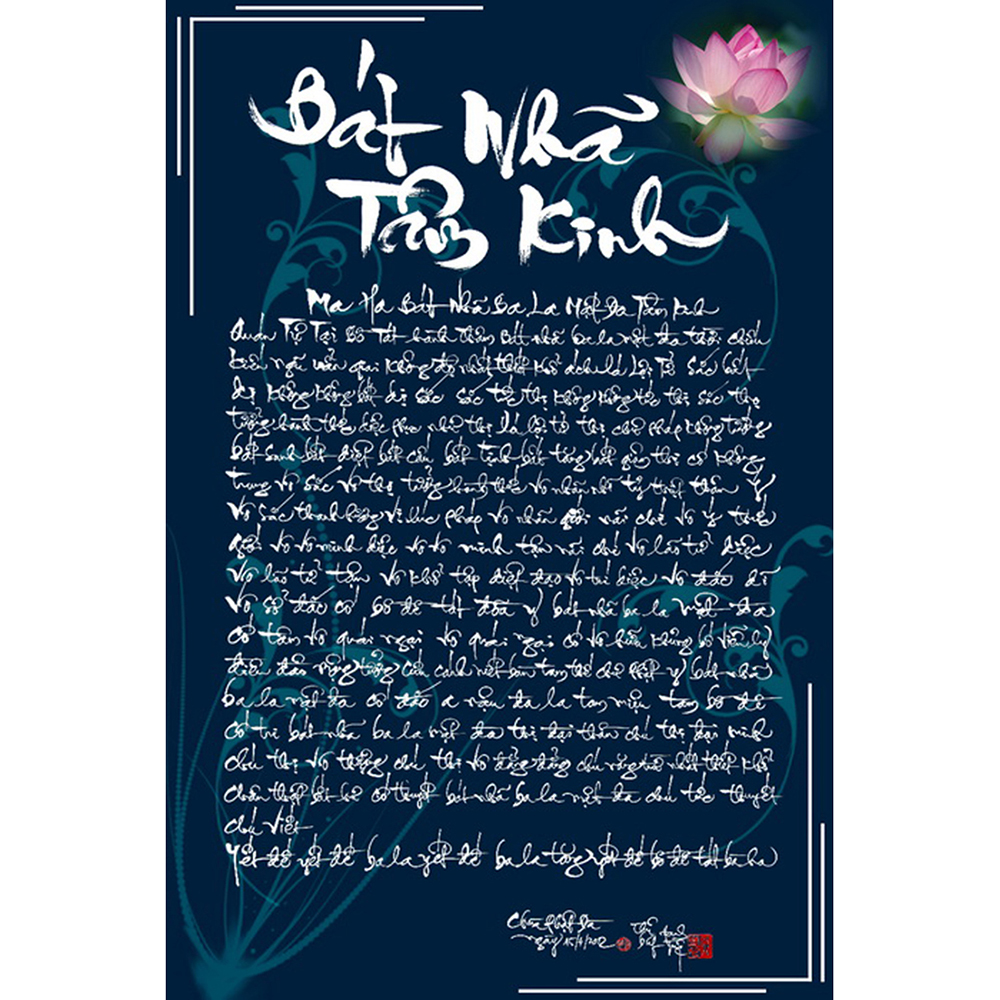 Bát Nhã
Tâm Kinh
Ma Ha Bát Nhã Ba La Mật Đa Tâm Kinh
Quán Tự Tại Bồ Tát hành thâm Bát nhã ba la mật đa thời chiếu
kiến ngũ uẩn giai không độ nhất thiết khổ ách Xá Lợi Tử sắc bất
dị không không bất dị sắc sắc tức thị không không tức thị sắc thọ
tưởng hành thức diệc phục như thị Xá lợi tử thị chư pháp không tướng
bất sanh bất diệt bất cấu bất tịnh bất tăng bất giảm thị cố không
trung vô sắc vô thọ tưởng hành thức vô nhãn nhĩ tỷ thiệt thân ý
vô sắc thanh hương vị xúc pháp vô nhãn giới nãi chí vô ý thức
giới vô vô minh diệc vô vô minh tận nãi chí vô lão tử diệc
vô lão tử tận vô khổ tập diệt đạo vô trí diệc vô đắc dĩ
vô sở đắc cố bồ đề tát đỏa y bát nhã ba la mật đa
cố tâm vô quái ngại vô quái ngại cố vô hữu khủng bố viễn ly
điên đảo mộng tưởng cứu cánh niết bàn tam thế chư Phật y bát nhã
ba la mật đa cố đắc a nậu đa la tam miệu tam bồ đề
cố tri bát nhã ba la mật đa thị đại thần chú thị đại minh
chú thị vô thượng chú thị vô đẳng đẳng chú năng trừ nhất thiết khổ
chân thật bất hư cố thuyết bát nhã ba la mật đa chú tức thuyết
chú viết
Yết đế yết đế ba la yết đế ba la tăng yết đế bồ đề tát bà ha
Chùa Phật Đà
ngày 15/4/2012